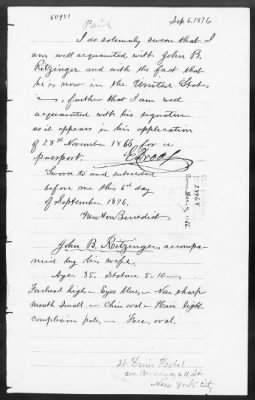 50951
Paid
Sep 6, 1876
I do solemnly swear that I
am well acquainted with John B.
Ritzinger and with the fact that
he is now in the United States
further that I am well
acquainted with his signature
as it appears in his application
of 28th November 1866 for a
passport.
Sworn to and subscribed
before me this 6th day
of September 1876.
Newton Benedict
John B. Ritzinger, accompa
nied by his wife.
Age 35. Stature 5.10
Forehead high — Eyes blue — Nose sharp
mouth small — Chin oval — Hair light
complexion pale — Face oval.
St Denis Hotel
cor Broadway & 11 St
New York City